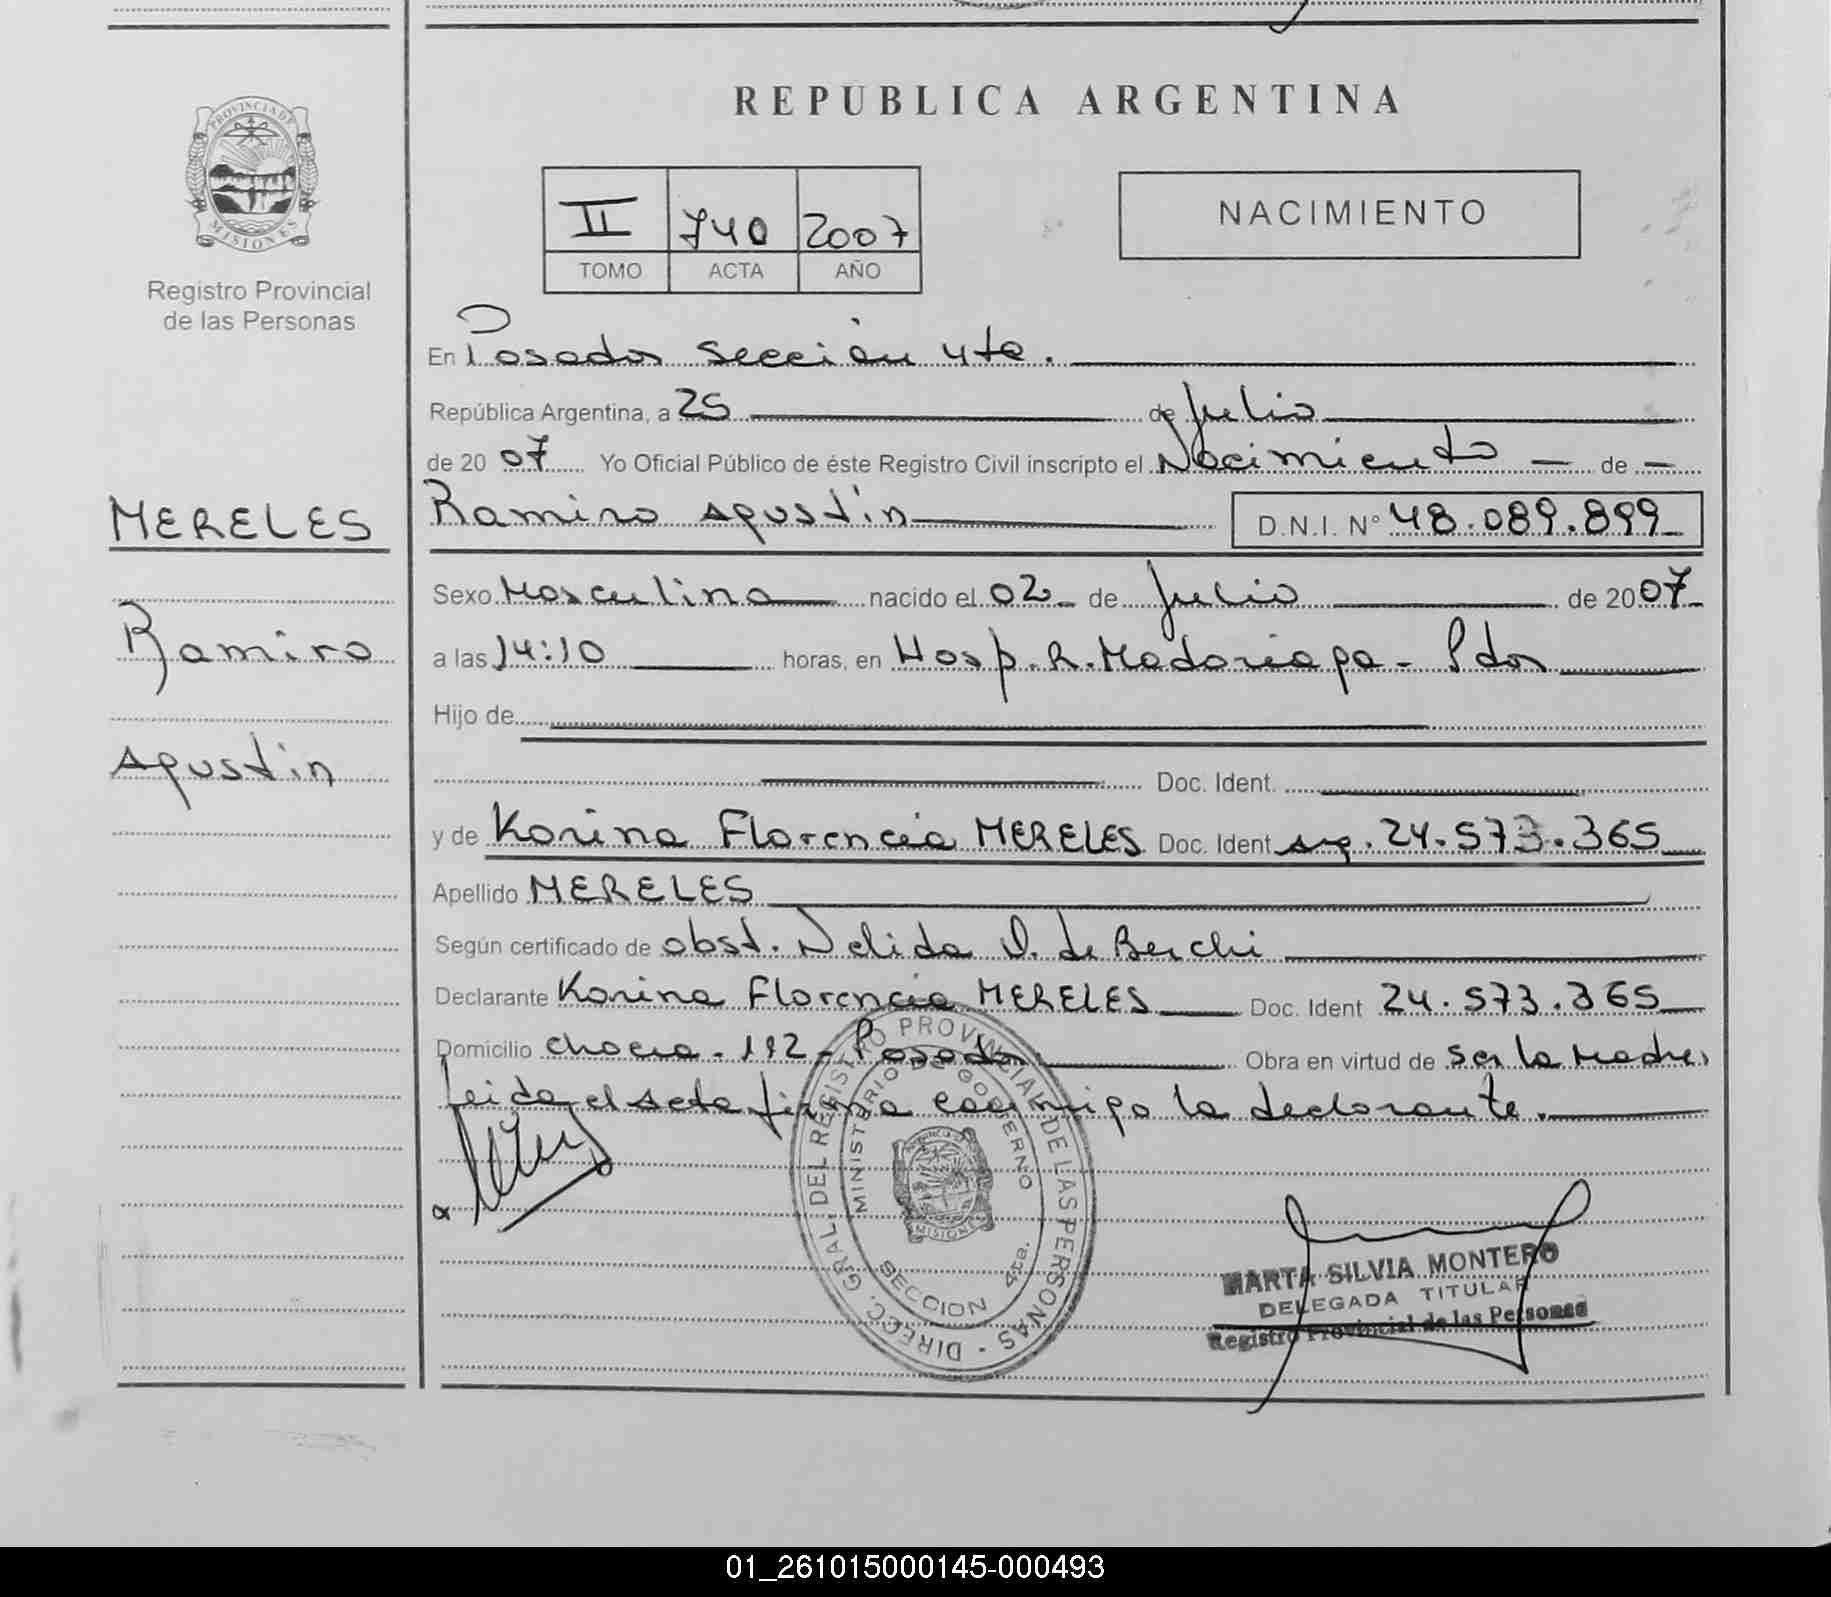 REPUBLICA ARGENTINA
PROVINCIA DE
MISIONES
Registro Provincial
de las Personas
II 740 2007
TOMO ACTA AÑO
NACIMIENTO
En Posadas sección 4ta.
República Argentina, a 25 de Julio
de 20 07 Yo Oficial Público de éste Registro Civil inscripto el Nacimiento de
MERELES
Ramiro Agustin D.N.I. N° 48.089.899
Sexo Masculino nacido el 02 de Julio de 20 07
Ramiro
a las 14:10 horas, en Hosp. R. Madariaga - Pdas
Hijo de
Agustin
Doc. Ident.
y de Korina Florencia MERELES Doc. Ident Arg. 24.573.365
Apellido MERELES
Según certificado de obst. Nelida D. de Berchi
Declarante Korina Florencia MERELES Doc. Ident 24.573.365
Domicilio chacra - 192 - Posadas Obra en virtud de ser la Madre,
leida el acta firma conmigo la declarante.
DIRECC. GRAL. DEL REGISTRO PROVINCIAL DE LAS PERSONAS -
MINISTERIO DE GOBIERNO
SECCION 4ta.
MISIONES
MARTA SILVIA MONTERO
DELEGADA TITULAR
Registro Provincial de las Personas
01_261015000145-000493